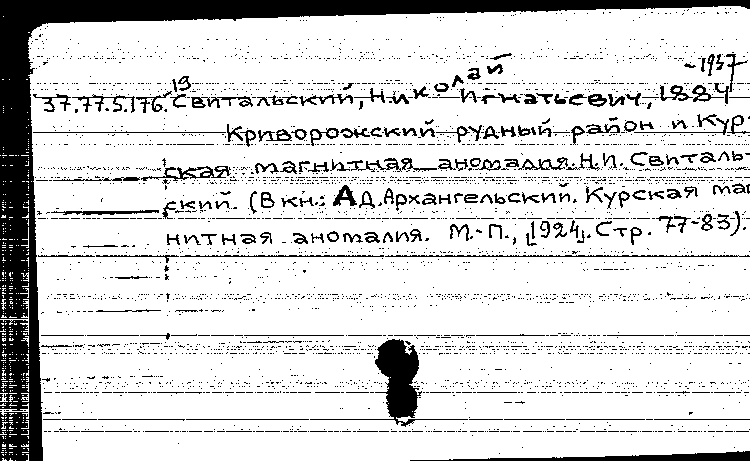 -1937
37.77.5.176. 19 Свитальский, Николай Игнатьевич, 1884
Криворожский рудный район и Кур-
ская магнитная аномалия. Н.И. Свиталь-
ский. (В кн.: А.Д. Архангельский. Курская маг
нитная аномалия. М.-П., [1924]. Стр. 77-83).